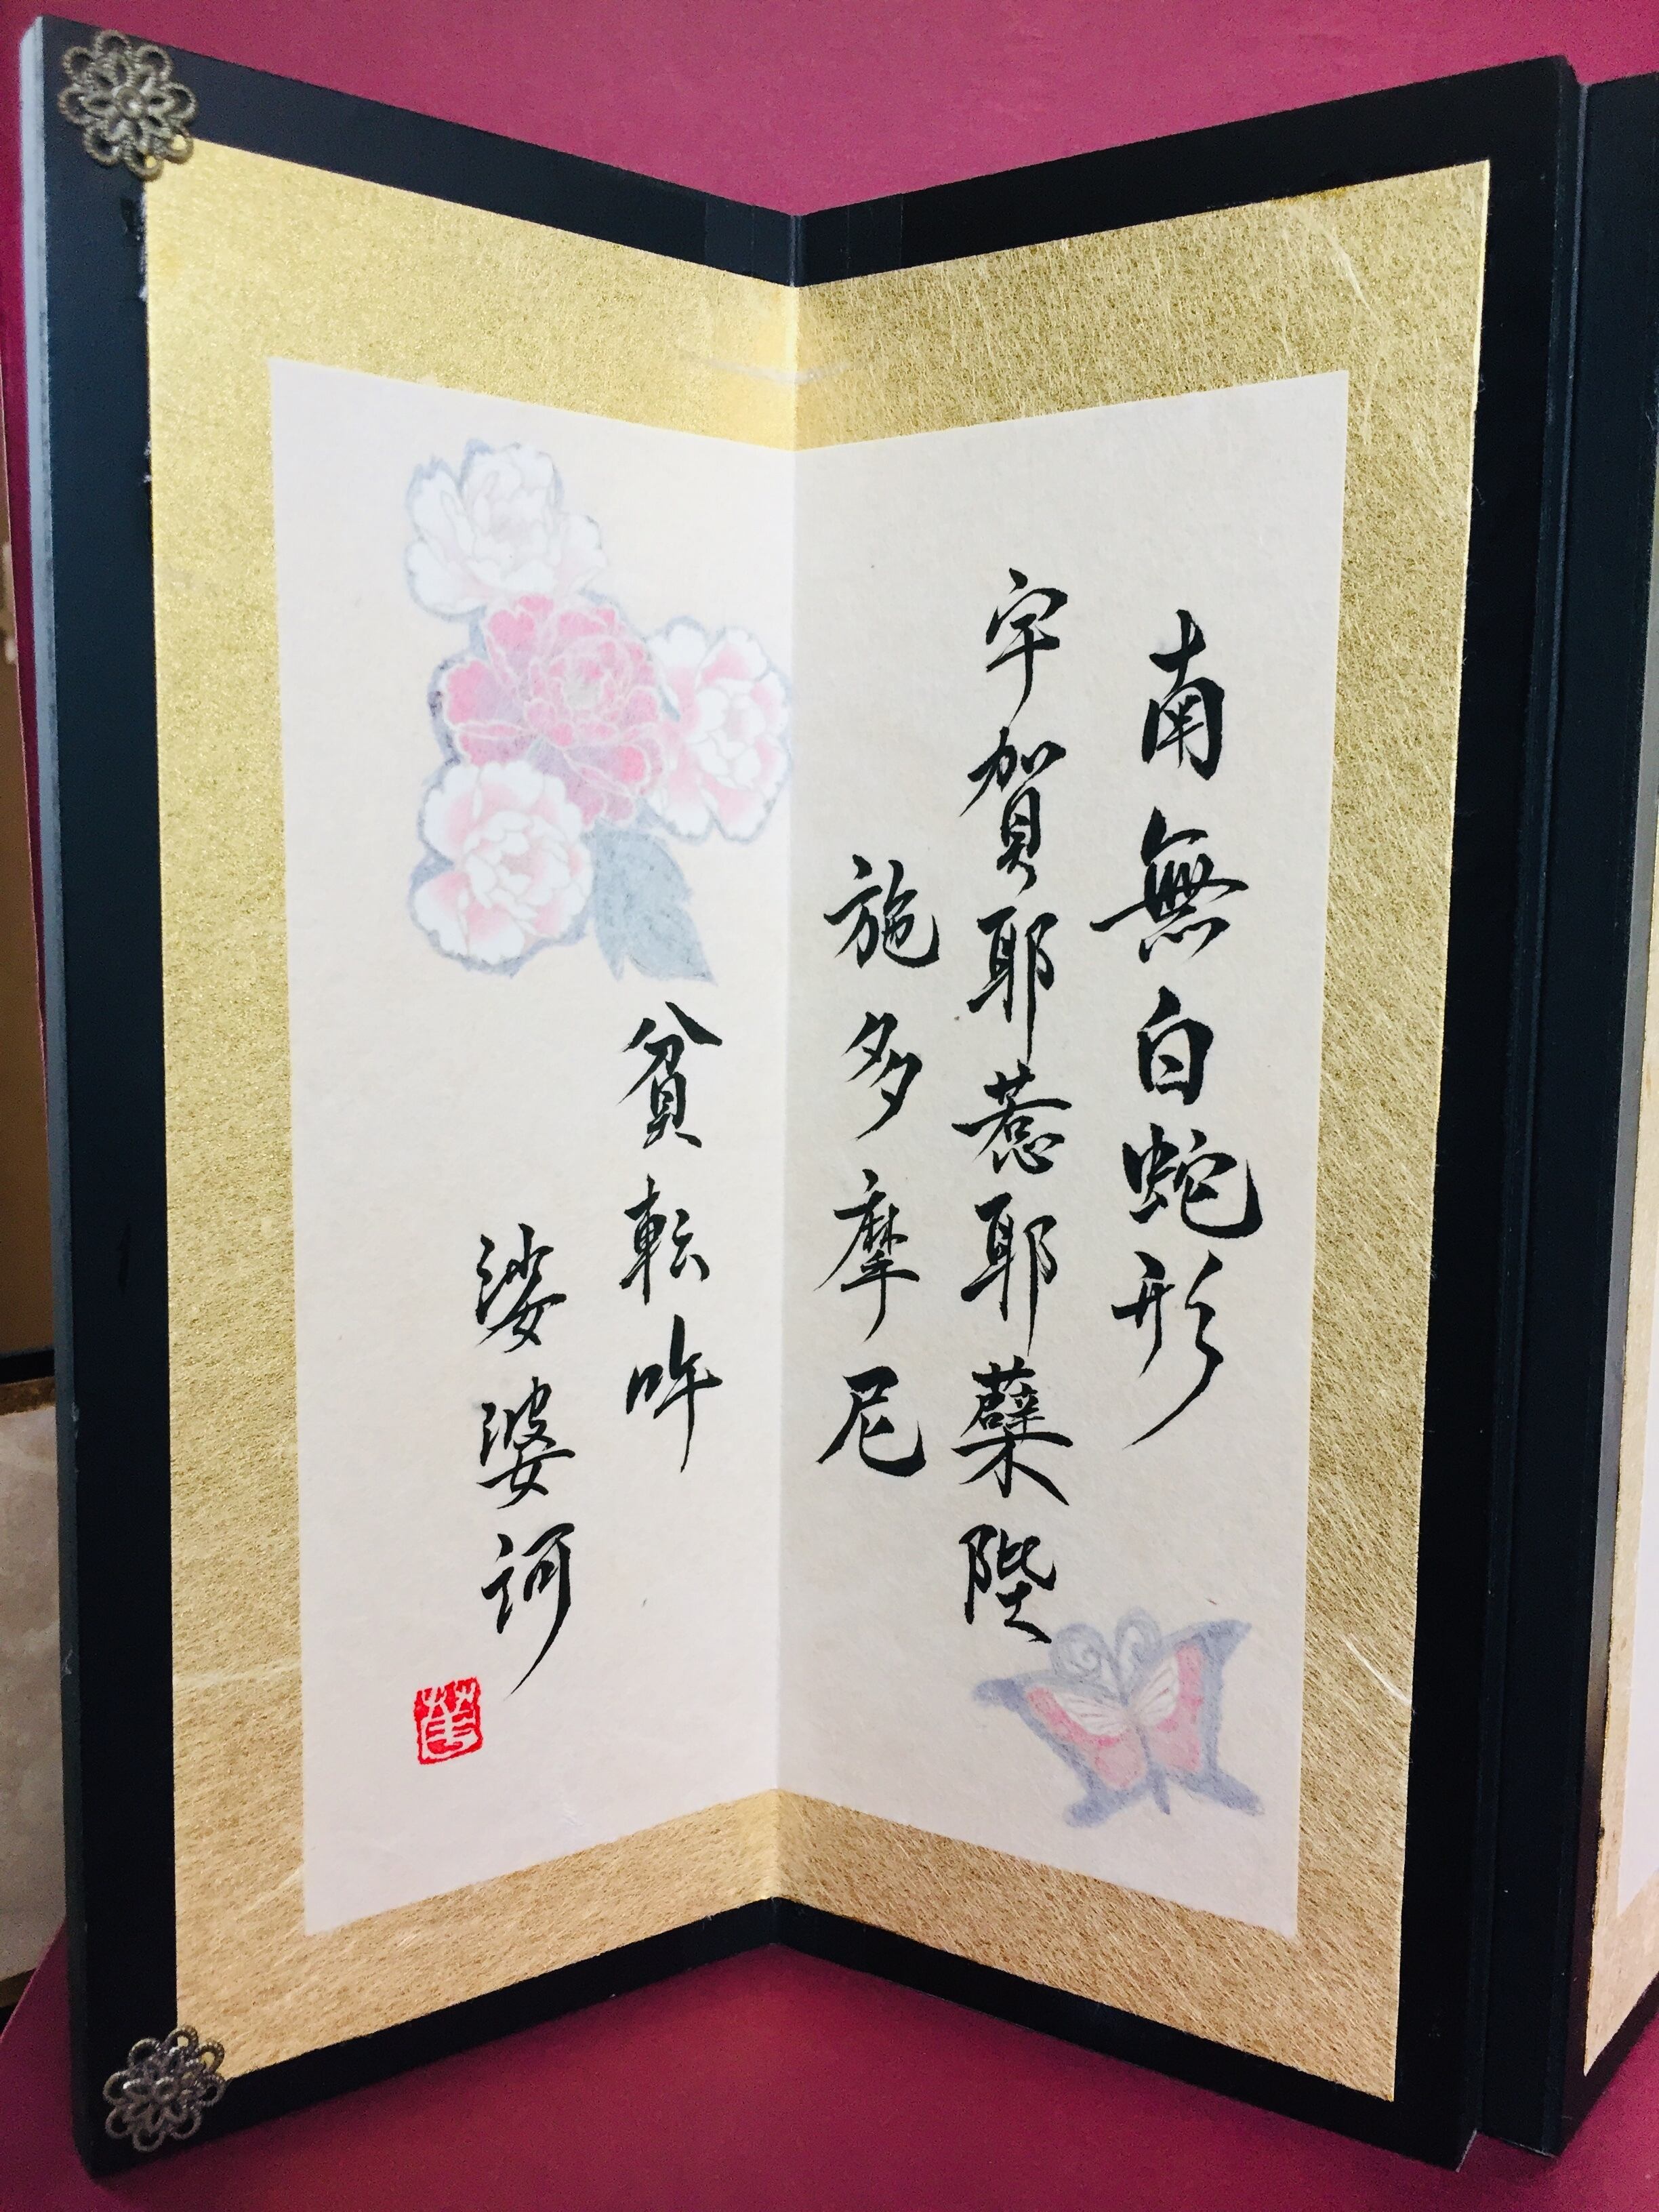 南無白蛇形
宇賀耶惹耶蘗陛
施多摩尼
貧転吽
娑婆訶